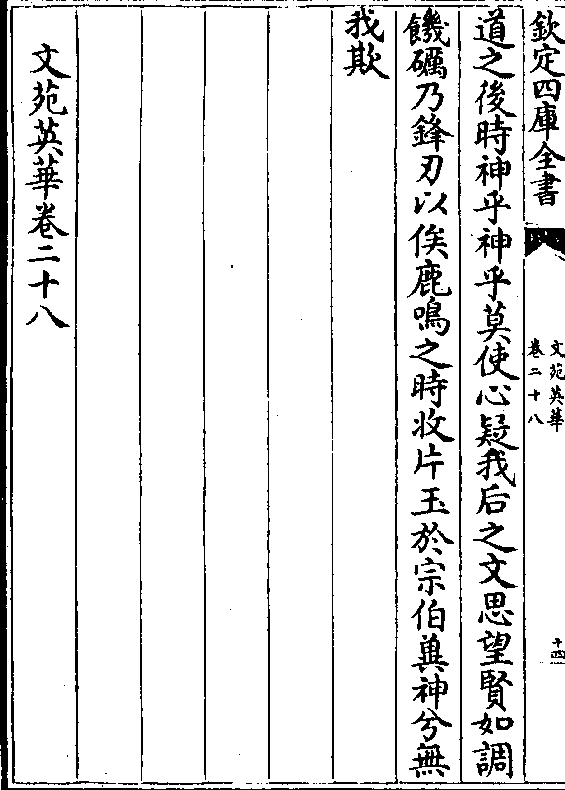 欽定四庫全書
文苑英華
卷二十八
十四
道之後時神乎神乎莫使心疑我后之文思望賢如調
饑礪乃鋒刃以俟鹿鳴之時收片玉於宗伯兾神兮無
我欺
文苑英華卷二十八